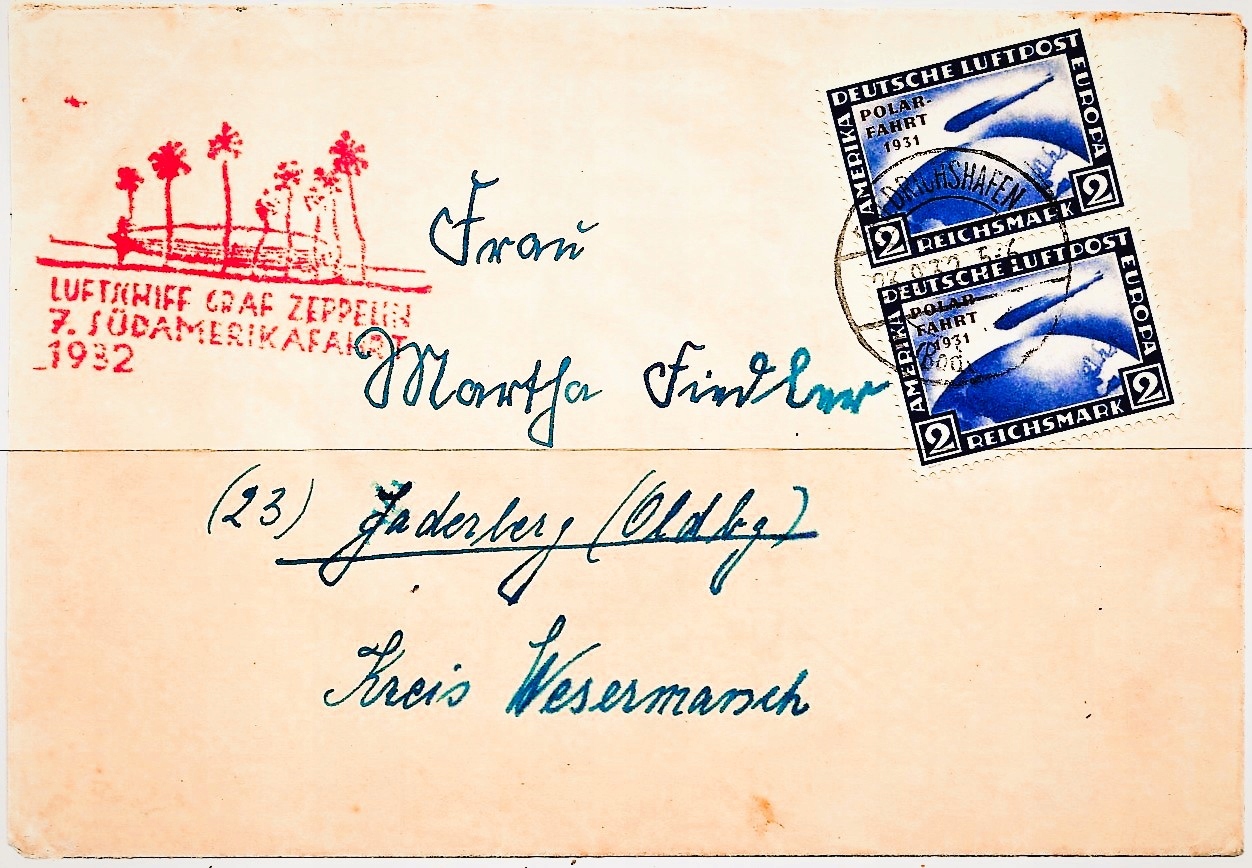 LUFTSCHIFF GRAF ZEPPELIN
7. SÜDAMERIKAFAHRT
1932
Frau
Martha Fiedler
(23) Jaderberg (Oldbg)
Kreis Wesermarsch
DEUTSCHE LUFTPOST
POLAR-
FAHRT
1931
AMERIKA
EUROPA
2 REICHSMARK 2
DEUTSCHE LUFTPOST
POLAR-
FAHRT
1931
AMERIKA
EUROPA
2 REICHSMARK 2